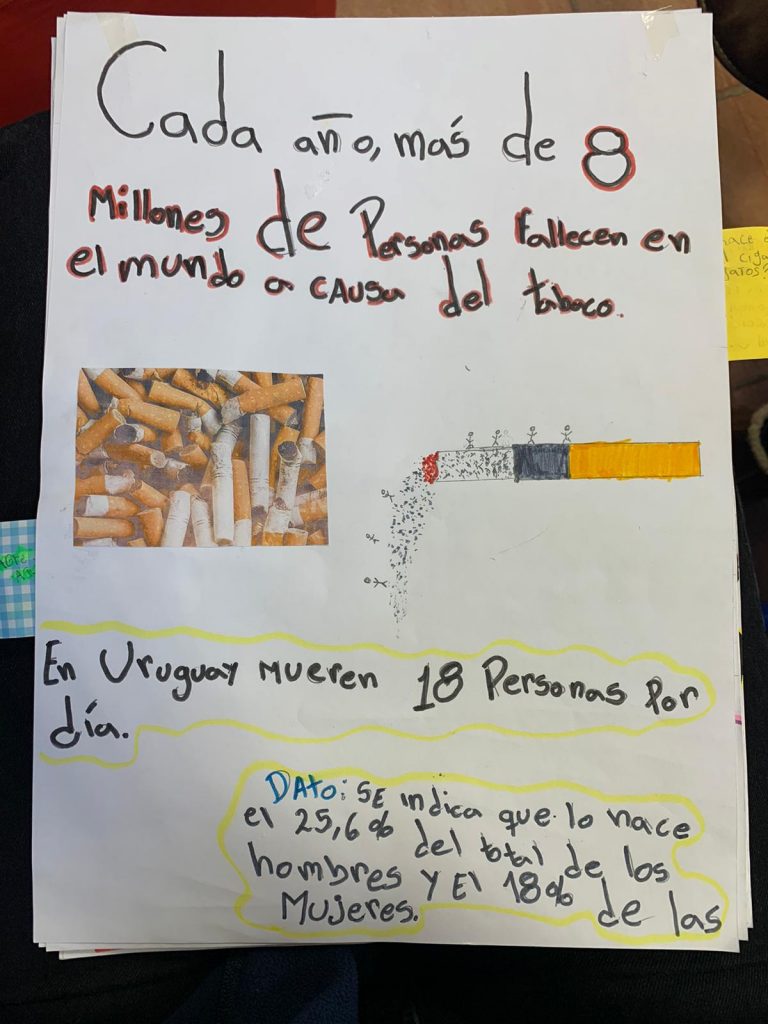 Cada año, más de 8
Millones de Personas Fallecen en
el mundo a causa del tabaco.
En Uruguay mueren 18 Personas Por
día.
DAto: SE indica que lo hace
el 25,6% del total de los
hombres y El 18% de las
Mujeres.